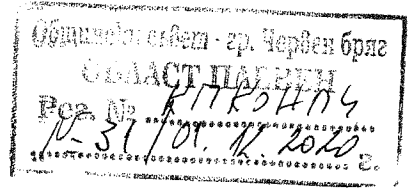 Общински съвет - гр. Червен бряг
ОБЛАСТ ПЛЕВЕН
Рег. № КПКОНПИ
№-31/01.12.2020 г.